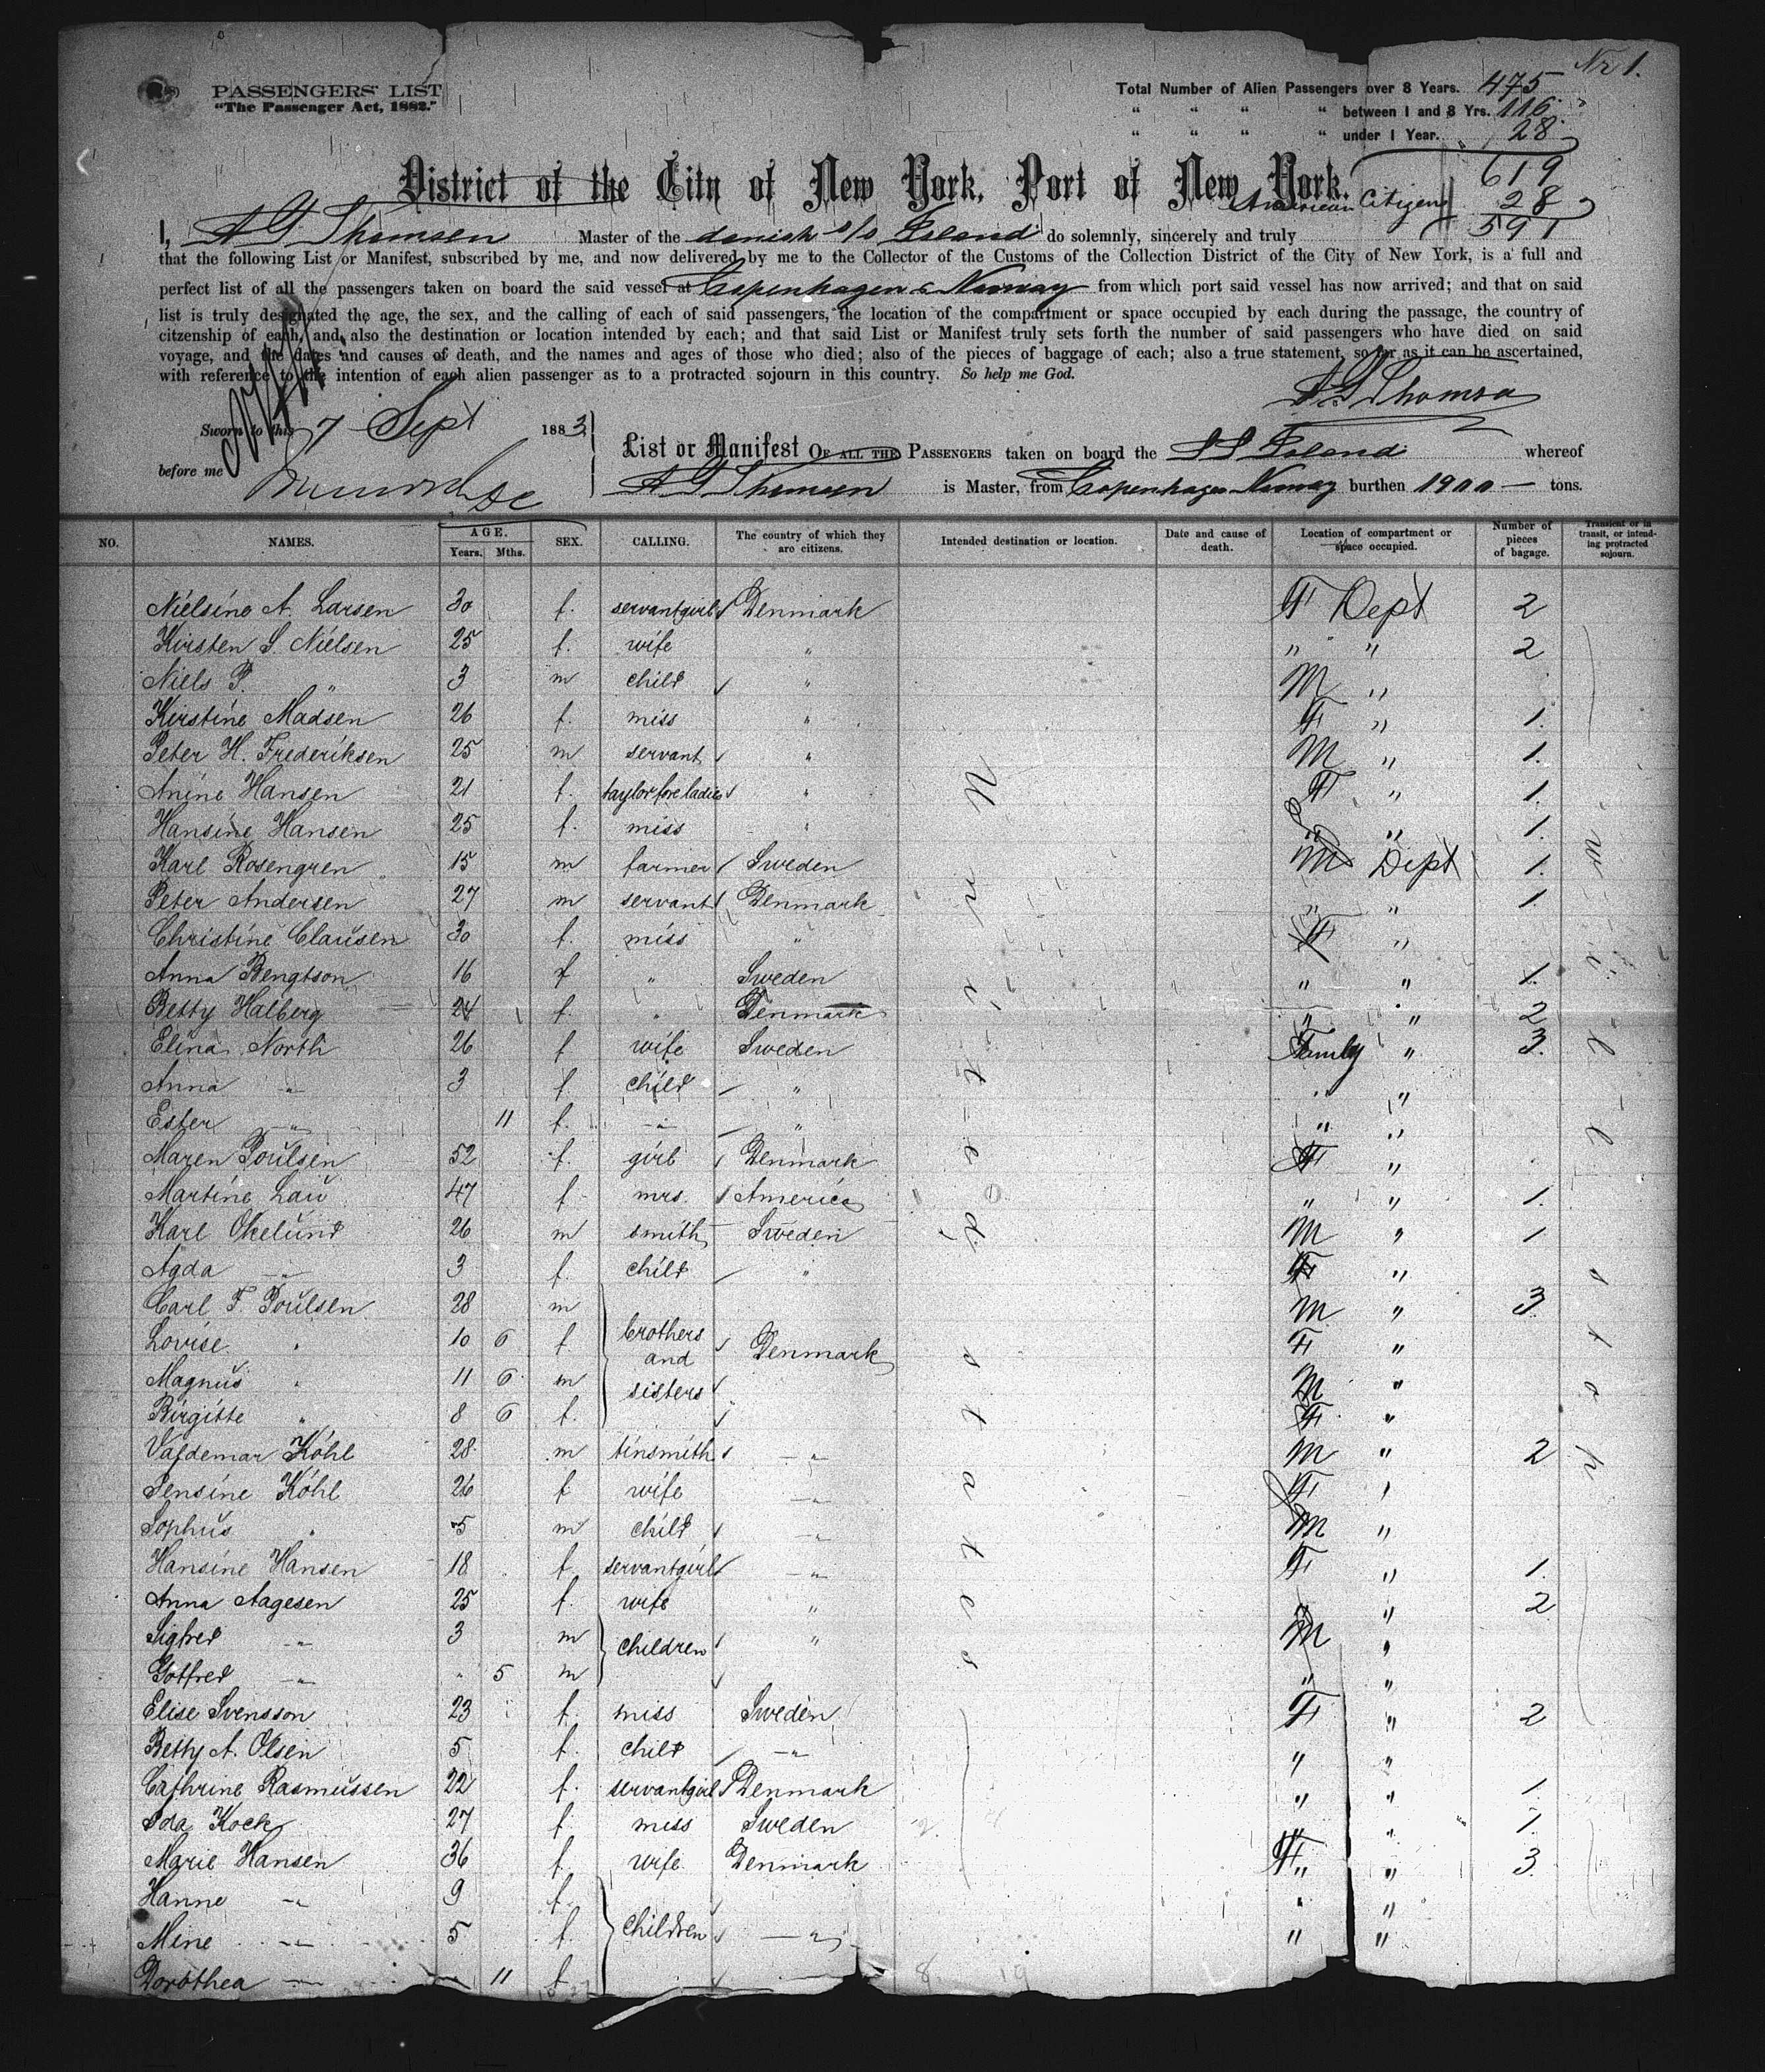 Nr 1.
PASSENGERS' LIST
"The Passenger Act, 1882."
Total Number of Alien Passengers over 8 Years. 475
" " " " between 1 and 8 Yrs. 116
" " " " under 1 Year. 28
619
American Citizens 28
591
District of the City of New York, Port of New York.
I, A G Thomsen Master of the danish s/s Island do solemnly, sincerely and truly
that the following List or Manifest, subscribed by me, and now delivered by me to the Collector of the Customs of the Collection District of the City of New York, is a full and
perfect list of all the passengers taken on board the said vessel at Copenhagen & Norway from which port said vessel has now arrived; and that on said
list is truly designated the age, the sex, and the calling of each of said passengers, the location of the compartment or space occupied by each during the passage, the country of
citzenship of each, and, also the destination or location intended by each; and that said List or Manifest truly sets forth the number of said passengers who have died on said
voyage, and the dates and causes of death, and the names and ages of those who died; also of the pieces of baggage of each; also a true statement, so far as it can be ascertained,
with reference to the intention of each alien passenger as to a protracted sojourn in this country. So help me God.
A G Thomsen
Sworn to this 7 Sept 1883
before me
List or Manifest OF ALL THE PASSENGERS taken on board the SS Island whereof
A G Thomsen is Master, from Copenhagen Norway burthen 1900 — tons.
NO. NAMES. AGE. Years. Mths. SEX. CALLING. The country of which they are citizens. Intended destination or location. Date and cause of death. Location of compartment or space occupied. Number of pieces of bagage. Transient or in transit, or intending protracted sojourn.
Nielsine A. Larsen 30 f. servantgirl Denmark F Dept 2
Kirsten S. Nielsen 25 f. wife " " " 2
Niels P. " 3 m child " M "
Kirstine Madsen 26 f. miss " F " 1.
Peter H. Frederiksen 25 m servant " M " 1.
Anine Hansen 21 f. taylor fore ladies " F " 1.
Hansine Hansen 25 f. miss " " " 1.
Karl Rosengren 15 m farmer Sweden M Dept 1.
Peter Andersen 27 m servant Denmark " " 1.
Christine Clausen 30 f. miss " F "
Anna Bengtson 16 f " Sweden " " 1.
Betty Halberg 24 f. " Denmark " " 2
Elina North 26 f wife Sweden Family " 3.
Anna " 3 f child " " "
Ester " 11 f. " " " "
Maren Poulsen 52 f. girl Denmark F "
Martine Lau 47 f mrs. America " " 1.
Karl Okelund 26 m smith Sweden M " 1
Agda " 3 f. child " F "
Carl F. Poulsen 28 m M " 3
Lovise " 10 6 f brothers and Denmark F "
Magnus " 11 6 m sisters M "
Birgitte " 8 6 f. F "
Valdemar Köhl 28 m tinsmith " M " 2
Jensine Köhl 26 f wife " F "
Sophus " 5 m child " M "
Hansine Hansen 18 f. servantgirl " F " 1.
Anna Aagesen 25 f. wife " " " 2
Sigfred " 3 m children " M "
Gotfred " " 5 m " "
Elise Svensson 23 f. miss Sweden F " 2
Betty A. Olsen 5 f. child " " "
Cathrine Rasmussen 22 f. servantgirl Denmark " " 1.
Ida Kock 27 f. miss Sweden " " 1.
Marie Hansen 36 f. wife Denmark F " 3.
Hanne " 9 f. " "
Mine " 5 f. children " " "
Dorothea — 11 f.
United states
will stop